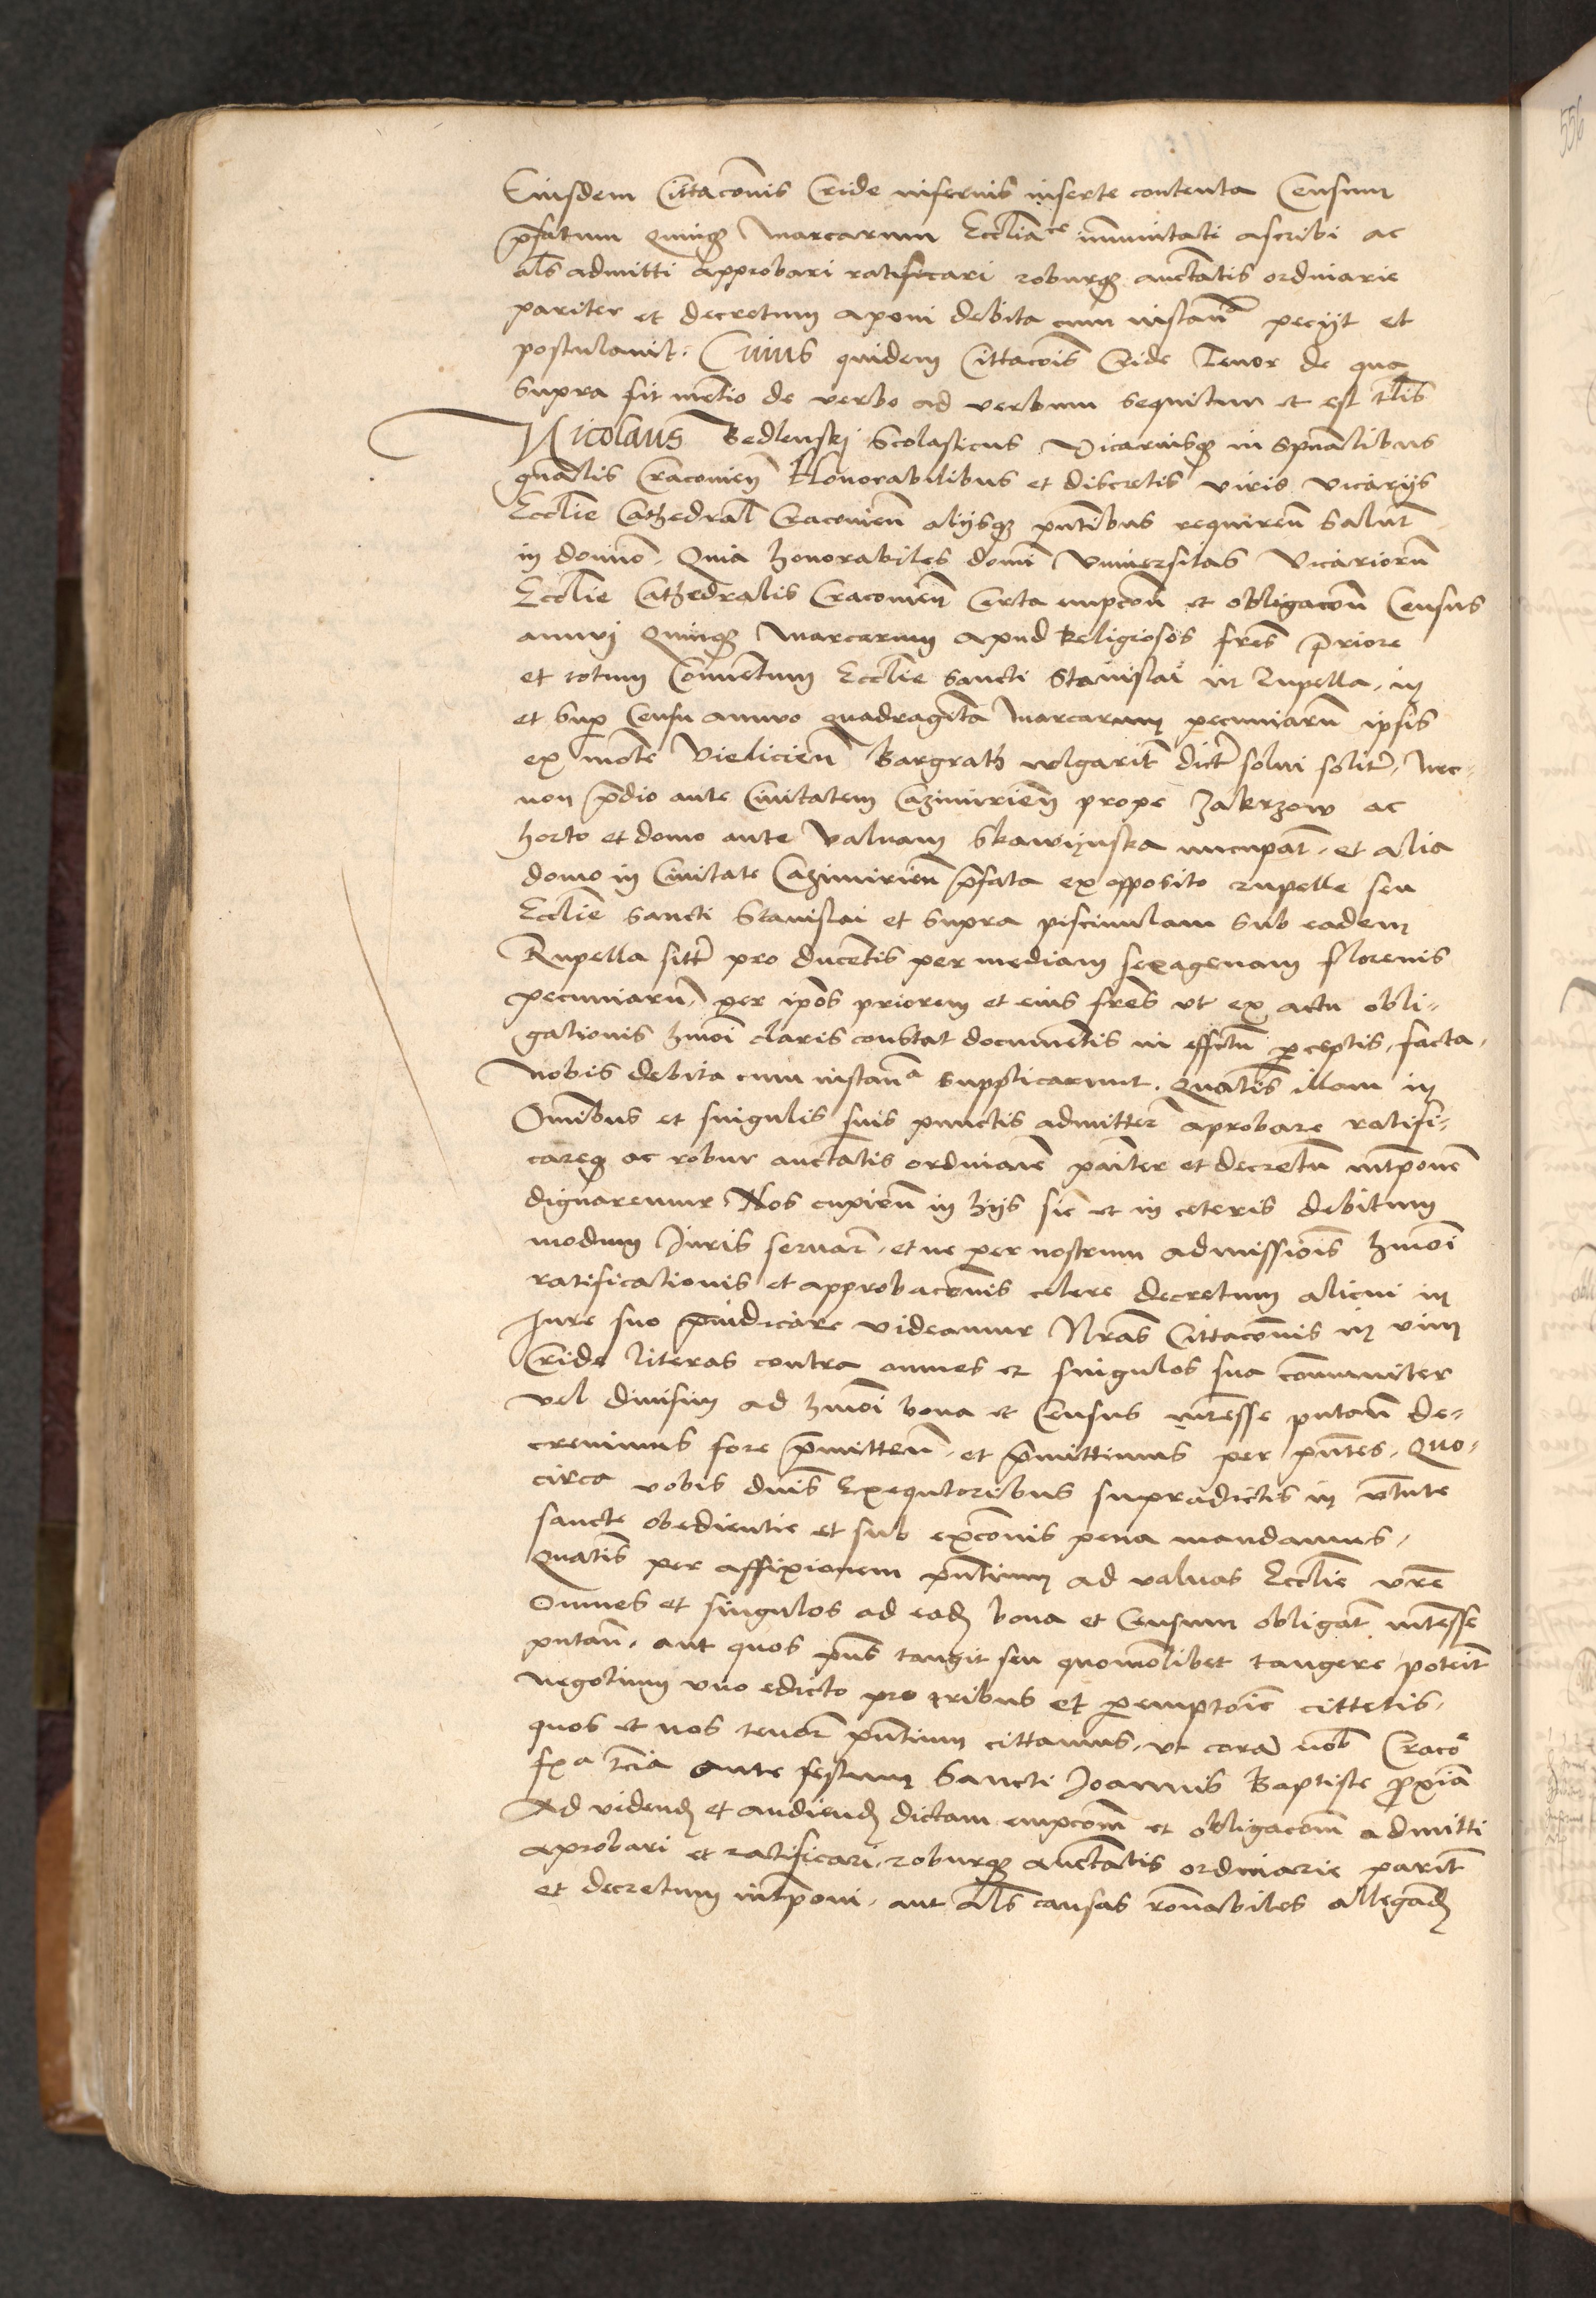 Eiusdem Cittaco͞nis Cride inferius inserte contenta Censum
p͞fatum Quinq3 Marcarum Eccl͞iace immunitati ascribi ac
al͞s admitti approbari ratificari roburq3 auct͞atis ordinarie
pariter et decretum aponi debita cum instan͞a pecijt et
postulavit. Cuius quidem Cittaco͞is Cride Tenor de qua
supra fit me͞tio de verbo ad verbum sequitur et est t͞lis
Nicolaus Bedlenskj Scolasticus Vicariusq3 in sp͞ualibus
gn͞alis Cracovien͞ Honorabilibus et discretis viris vicarijs
Eccl͞ie Cathedral͞ Cracovien͞ alijsq3 pn͞tibus requiren͞ salut͞
in domino͞. Quia honorabiles domi͞ Universitas Vicarioru͞
Eccl͞ie Cathedralis Cracovien͞ Certa empco͞n et obligaco͞n Census
annuj Quinq3 Marcarum apud Religiosos fr͞es Priore͞
et totum Conventum Eccl͞ie sancti Stanislai in Rupella. in
et sup͞ Censu annuo quadraginta Marcarum pecuniaru͞ ipsis
ex mo͞te Vielicien͞ Bargrath vulgarit͞ dict͞ solvi solit͞. Nec-
non p͞dio ante Civitatem Cazimirien͞ prope Zakrzow ac
horto et domo ante valvam Skawijnska nuncupat͞. et alia
domo in Civitate Cazimirien͞ p͞fata ex opposito rupelle seu
Eccl͞ie sancti Stanislai et supra piscinulam sub eadem
Rupella sitt͞ pro ducentis per mediam sexagenam florenis
pecuniaru͞ per ip͞os priorem et eius fr͞es ut ex actu obli-
gationis h͞moi claris constat documentis in effectu͞ p͞ceptis, facta,
nobis debita cum instan͞a supplicarunt. Quat͞is illam in
Omnibus et singulis suis punctis admitter͞ aprobare ratifi-
careq3 ac robur auct͞atis ordinarie͞ pa͞iter et decretu͞ int͞ponere͞
dignaremur. Nos cupien͞ in hijs sic et in ceteris debitum
modum Juris servar͞. et ne per nostrum admissio͞is h͞moi
ratificationis et approbaco͞nis celere decretum alicui in
Jure suo p͞iudicare videamur Nr͞as Cittaco͞nis in vim
Cride literas contra omnes et singulos sua co͞muniter
vel divisim ad h͞moi bona et Census int͞esse putan͞ de-
crevimus fore p͞mitten͞. et p͞mittimus per pn͞tes. Quo-
circa vobis dn͞is Exequtoribus supradictis in v͞tute
sancte obedientie et sub exco͞nis pena mandamus,
Quat͞is per affixionem pn͞tium ad valvas Eccl͞ie vr͞e
Omnes et singulos ad ead͞ bona et Censum obligat͞ int͞esse
putan͞. aut quos p͞ns tangit seu quomo͞libet tangere poterit͞
negotium uno edicto pro tribus et peremptorie͞ cittetis.
quos et nos tenor͞ pn͞tium cittamus. ut cora͞ nob͞ Craco͞
f͞xa t͞cia ante festum Sancti Joannis Baptiste p͞xi͞a
Ad videnḍ et audienḍ dictam empco͞nm et obligaco͞nm admitti
aprobari et ratificari. roburq3 auct͞atis ordinarie parit͞
et decretum int͞poni. aut al͞s causas ro͞nabiles allegand͞